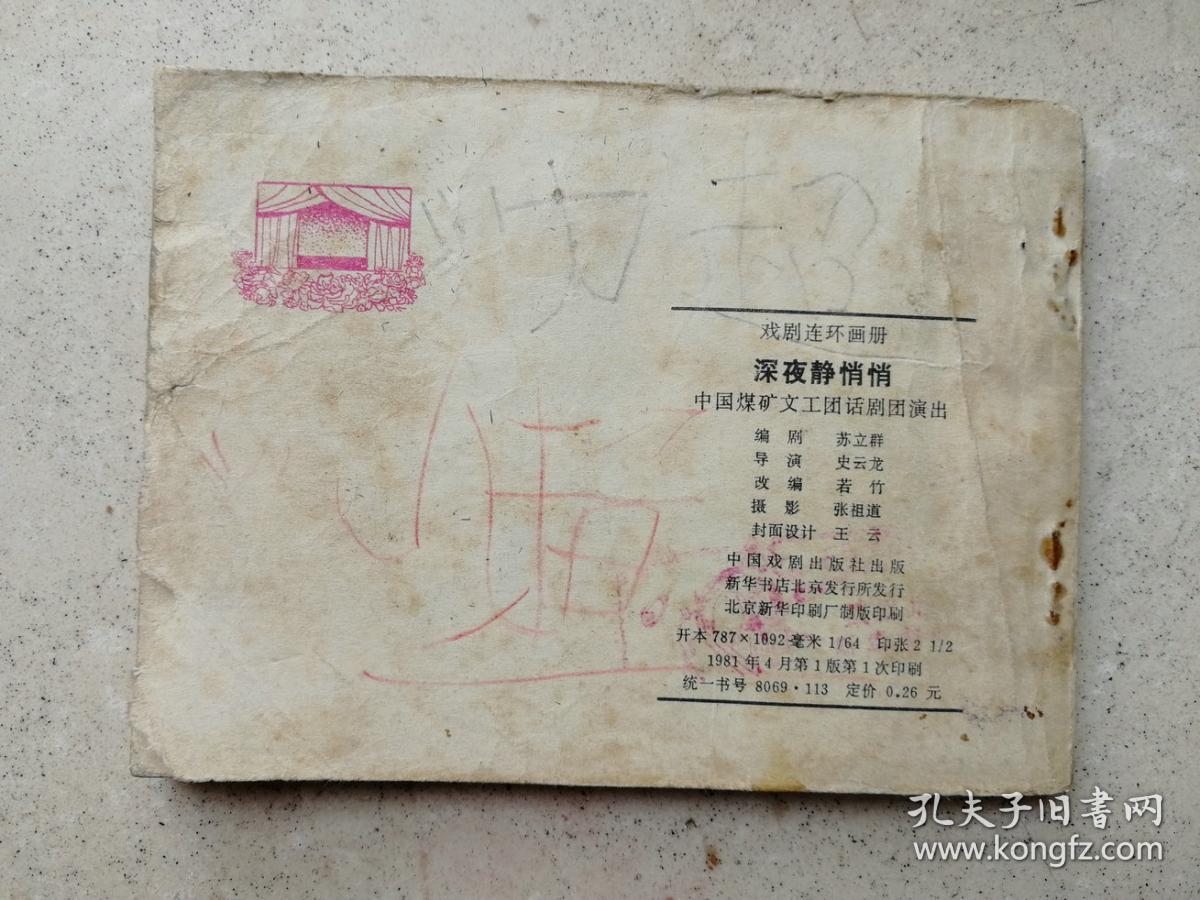 戏剧连环画册
深夜静悄悄
中国煤矿文工团话剧团演出
编 剧 苏立群
导 演 史云龙
改 编 若 竹
摄 影 张祖道
封面设计 王 云
中国戏剧出版社出版
新华书店北京发行所发行
北京新华印刷厂制版印刷
开本 787×1092 毫米 1/64 印张 2 1/2
1981 年 4 月第 1 版第 1 次印刷
统一书号 8069·113 定价 0.26 元
孔夫子旧书网
www.kongfz.com